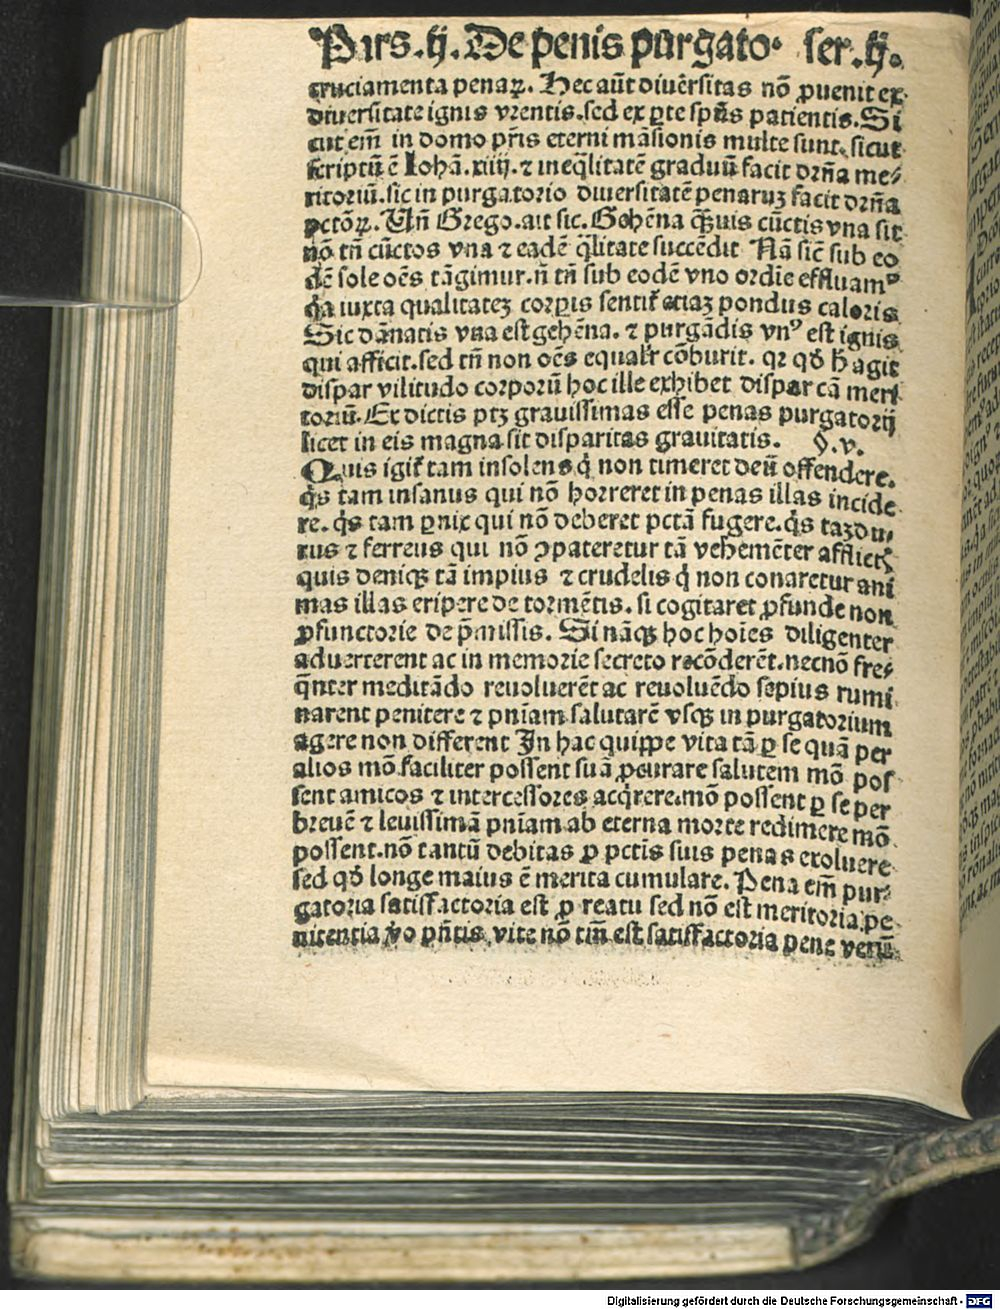 Pars .ij. De penis purgato. ser .ij.
cruciamenta penaꝝ. Hec aūt diuersitas nō ꝓuenit ex
diuersitate ignis vrentis. sed ex ꝑte spūs patientis. Si
cut em̄ in domo pr̄is eterni māsionis multe sunt. sicut
scriptū ē Iohā. xiiij. ⁊ ineq̄litatē graduū facit dr̄na me-
ritoriū. sic in purgatorio diuersitatē penaruꝫ facit dr̄na
pctōꝝ. Uñ Grego. ait sic. Gehēna qꝫuis cūctis vna sit
nō tn̄ cūctos vna ⁊ eadē q̄litate succēdit Nā sic̄ sub eo
dē sole oēs tāgimur. n̄ tn̄ sub eodē vno ordīe effluamꝰ
q̄a iuxta qualitateꝫ corꝑis sentit̄ etiaꝫ pondus caloris
Sic dānatis vna est gehēna. ⁊ purgādis vnꝰ est ignis
qui afficit. sed tn̄ non oēs equalr̄ cōburit. qꝛ qð h̄ agit
dispar vilitudo corporū hoc ille exhibet dispar cā meri
toriū. Ex dictis ptꝫ grauissimas esse penas purgatorij
licet in eis magna sit disparitas grauitatis. §. v.
Quis igit̄ tam insolens q̇ non timeret deū offendere.
q̇s tam insanus qui nō horreret in penas illas incide
re. q̇s tam ꝑnix qui nō deberet pctā fugere. q̇s taꝫ du-
rus ⁊ ferreus qui nō ꝯpateretur tā vehemēter afflict̄
quis deniqꝫ tā impius ⁊ crudelis q̇ non conaretur ani
mas illas eripere de tormētis. si cogitaret ꝓfunde non
ꝓfunctorie de p̄missis. Si nāqꝫ hoc hoīes diligenter
aduerterent ac in memorie secreto recōderēt. necnō fre-
q̄nter meditādo reuoluerēt ac reuoluēdo sepius rumi
narent penitere ⁊ pn̄iam salutarē vsqꝫ in purgatorium
agere non different In hac quippe vita tā ꝑ se quā per
alios mō faciliter possent suā ꝓcurare salutem mō pos
sent amicos ⁊ intercessores acq̇rere. mō possent ꝑ se per
breuē ⁊ leuissimā pn̄iam ab eterna morte redimere mō
possent. nō tantū debitas ꝓ pctis suis penas exoluere
sed qð longe maius ē merita cumulare. Pena em̄ pur-
gatoria satisfactoria est ꝓ reatu sed nō est meritoria. pe-
nitentia v̊o pn̄tis vite nō tm̄ est satisfactoria pene verū
Digitalisierung gefördert durch die Deutsche Forschungsgemeinschaft - DFG